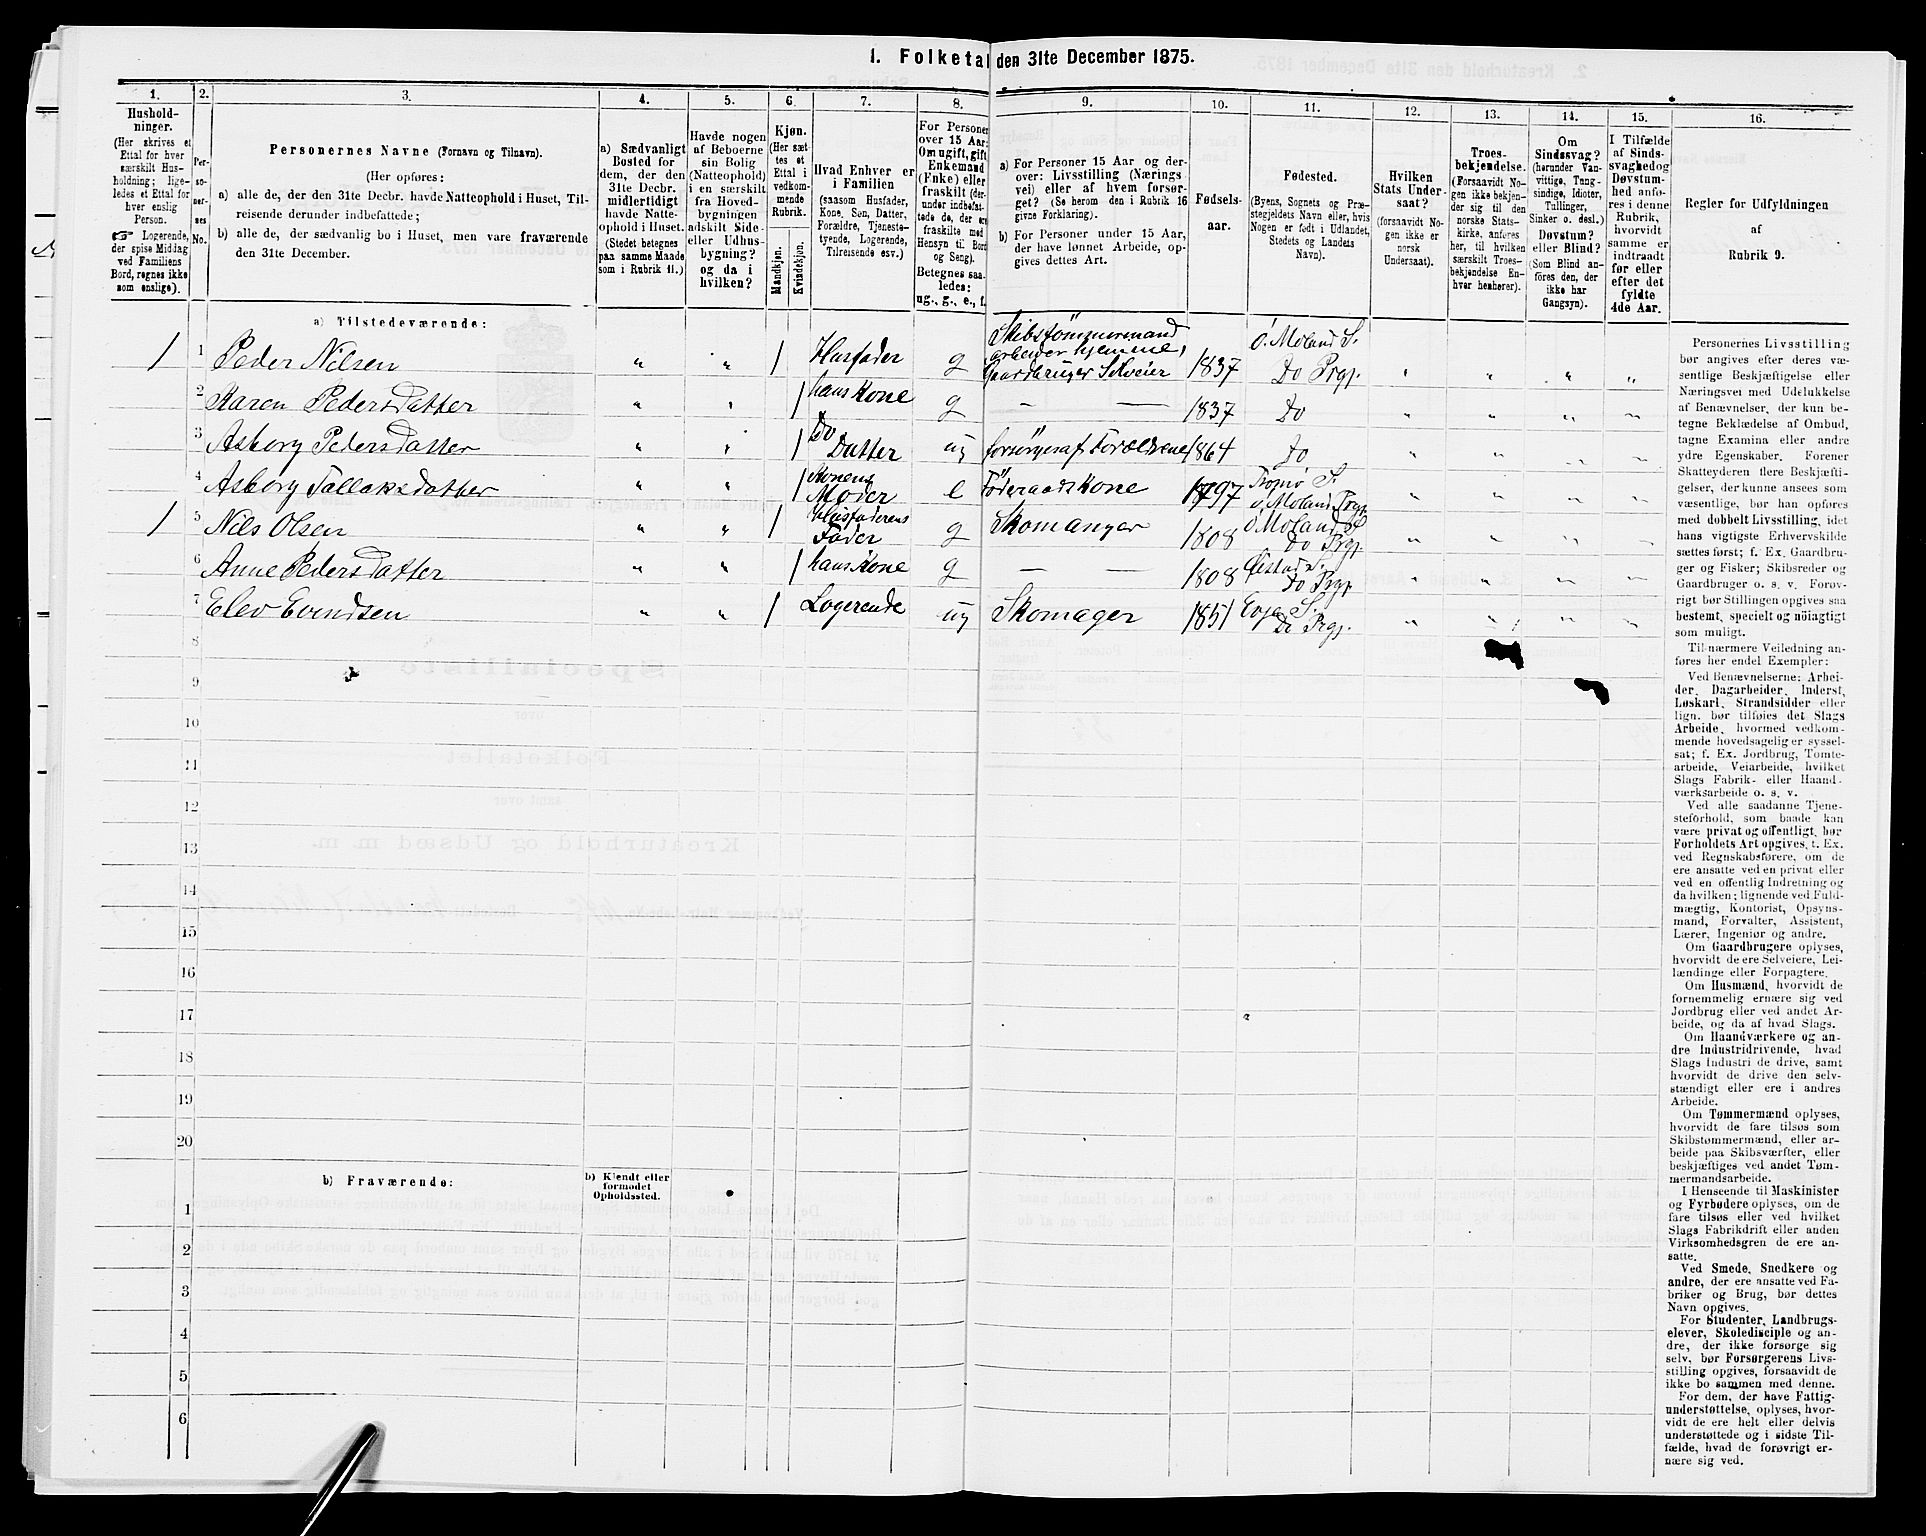 1. Folketal den 31te December 1875.
1. 2. 3. 4. 5. 6. 7. 8. 9. 10. 11. 12. 13. 14. 15. 16.
Hushold-
ninger.
(Her skrives et
Ettal for hver
særskilt Hus-
holdning; lige-
ledes et Ettal for
hver enslig
Person.
☞ Logerende,
der spise Middag
ved Familiens
Bord, regnes ikke
som enslige).
Per-
so-
ner-
nes
No.
Personernes Navne (Fornavn og Tilnavn).
(Her opføres:
a) alle de, der den 31te Decbr. havde Natteophold i Huset, Til-
reisende derunder indbefattede;
b) alle de, der sædvanlig bo i Huset, men vare fraværende
den 31te December.
a) Sædvanligt
Bosted for
dem, der den
31te Decbr.
midlertidigt
havde Natte-
ophold i Huset.
(Stedet betegnes
paa samme Maade
som i Rubrik 11.)
Havde nogen
af Beboerne
sin Bolig
(Natteophold)
i en særskilt
fra Hoved-
bygningen
adskilt Side-
eller Udhus-
bygning?
og da i
hvilken?
Kjøn.
(Her sæt-
tes et
Ettal i
vedkom-
mende
Rubrik.
Mandkjøn.
Kvindekjøn.
Hvad Enhver er
i Familien
(saasom Husfader,
Kone, Søn, Datter,
Forældre, Tjeneste-
tyende, Logerende,
Tilreisende osv.)
For Personer
over 15 Aar:
Om ugift, gift,
Enkemand
(Enke) eller
fraskilt (der-
under indbefat-
tede de, der ere
fraskilte med
Hensyn til Bord
og Seng).
Betegnes saa-
ledes:
ug., g., e., f.
a) For Personer 15 Aar og der-
over: Livsstilling (Nærings-
vei) eller af hvem forsør-
get? (Se herom den i Rubrik 16
givne Forklaring).
b) For Personer under 15 Aar,
der have lønnet Arbeide, op-
gives dettes Art.
Fødsels-
aar.
Fødested.
(Byens, Sognets og Præ-
stegjeldets Navn eller, hvis
Nogen er født i Udlandet,
Stedets og Landets
Navn).
Hvilken
Stats Under-
saat?
(forsaavidt No-
gen ikke er
norsk
Undersaat).
Troes-
bekjendelse.
(Forsaavidt No-
gen ikke bekjen-
der sig til den
norske Stats-
kirke, anføres
her, til hvilken
særskilt Troes-
bekjendelse En-
hver henhører).
Om
Sindssvag?
(herunder Van-
vittige, Tung-
sindige, Idioter,
Tullinger,
Sinker o. desl.)
Døvstum?
eller Blind?
(Som Blind an-
føres den, der
ikke har
Gangsyn).
I Tilfælde
af Sinds-
svaghed og
Døvstum-
hed anfø-
res i denne
Rubrik,
hvorvidt
samme er
indtraadt
før eller
efter det
fyldte
4de Aar.
Regler for Udfyldningen
af
Rubrik 9.
a) Tilstedeværende:
1 1 Peder Nilsen " " 1 Husfader g Skibstømmermand
arbeider hjemme,
Gaardbruger Selveier 1837 ø. Moland S.
Do Prgj. " " " "
2 Karen Pedersdatter " " 1 hans Kone g — — 1837 Do " " " "
3 Asborg Pedersdatter " " 1 Do
Datter ug forsørges af Forældrene 1864 Do " " " "
4 Asborg Tallaksdatter " " 1 Konens
Moder e Føderaadskone 1797 Tromø S.
ø. Moland Prgj. " " " "
1 5 Nils Olsen " " 1 Husfaderens
Fader g Skomanger 1808 ø. Moland S
Do Prgj. " " " "
6 Anne Pedersdatter " " 1 hans Kone g — — 1808 Øiestad S.
Do Prgj " " " "
7 Elev Evendsen " " 1 Logerende ug Skomager 1851 Evje S.
Do Prgj. " " " "
8
9
10
11
12
13
14
15
16
17
18
19
20
b) Fraværende:
b) Kjendt eller
formodet
Opholdssted.
1
2
3
4
5
6
Personernes Livsstilling
bør angives efter deres væ-
sentlige Beskjæftigelse eller
Næringsvei med Udelukkelse
af Benævnelser, der kun be-
tegne Beklædelse af Ombud,
tagne Examina eller andre
ydre Egenskaber. Forener
Skatteyderen flere Beskjæfti-
gelser, der kunne ansees som
væsentlige, bør han opføres
med dobbelt Livsstilling, idet
hans vigtigste Erhvervskilde
sættes først; f. Ex. Gaardbru-
ger og Fisker; Skibsreder og
Gaardbruger o. s. v. Forøv-
rigt bør Stillingen opgives saa
bestemt, specielt og nöiagtigt
som muligt.
Til nærmere Veiledning an-
føres her endel Exempler:
Ved Benævnelserne: Arbei-
der, Dagarbeider, Inderst,
Løskarl, Strandsidder eller
lign. bør tilføies det Slags
Arbeide, hvormed vedkom-
mende hovedsagelig er syssel-
sat; f. Ex. Jordbrug, Tomte-
arbeide, Veiarbeide, hvilket
Slags Fabrik- eller Haand-
værksarbeide o. s. v.
Ved alle saadanne Tjene-
steforhold, som baade kan
være privat og offentligt, bør
Forholdets Art opgives, f. Ex.
ved Regnskabsførere, om de
ere ansatte ved en privat eller
ved en offentlig Indretning og
da hvilken; lignende ved Fuld-
mægtig, Kontorist, Opsyns-
mand, Forvalter, Assistent,
Lærer, Ingeniør og andre.
Om Gaardbrugere oplyses,
hvorvidt de ere Selveiere, Lei-
lændinge eller Forpagtere.
Om Husmænd, hvorvidt de
fornemmelig ernære sig ved
Jordbrug eller ved andet Ar-
beide, og da af hvad Slags.
Om Haandværkere og an-
dre Industridrivende, hvad
Slags Industri de drive, samt
hvorvidt de drive den selv-
stændigt eller ere i andres
Arbeide.
Om Tømmermænd oplyses,
hvorvidt de fare tilsøs som
Skibstømmermænd, eller ar-
beide paa Skibsværfter, eller
beskjæftiges ved andet Tøm-
mermandsarbeide.
I Henseende til Maskinister
og Fyrbødere oplyses, om de
fare tilsøs eller ved hvilket
Slags Fabrikdrift eller anden
Virksomhedsgren de ere an-
satte.
Ved Smede, Snedkere og
andre, der ere ansatte ved Fa-
briker og Brug, bør dettes
Navn opgives.
For Studenter, Landbrugs-
elever, Skoledisciple og an-
dre, der ikke forsørge sig
selv, bør Forsørgerens Livs-
stilling opgives, forsaavidt de
ikke bo sammen med denne.
For dem, der have Fattig-
understøttelse, oplyses, hvor-
vidt de ere helt eller delvis
understøttede og i sidste Til-
fælde, hvad de forøvrigt er-
nære sig ved.